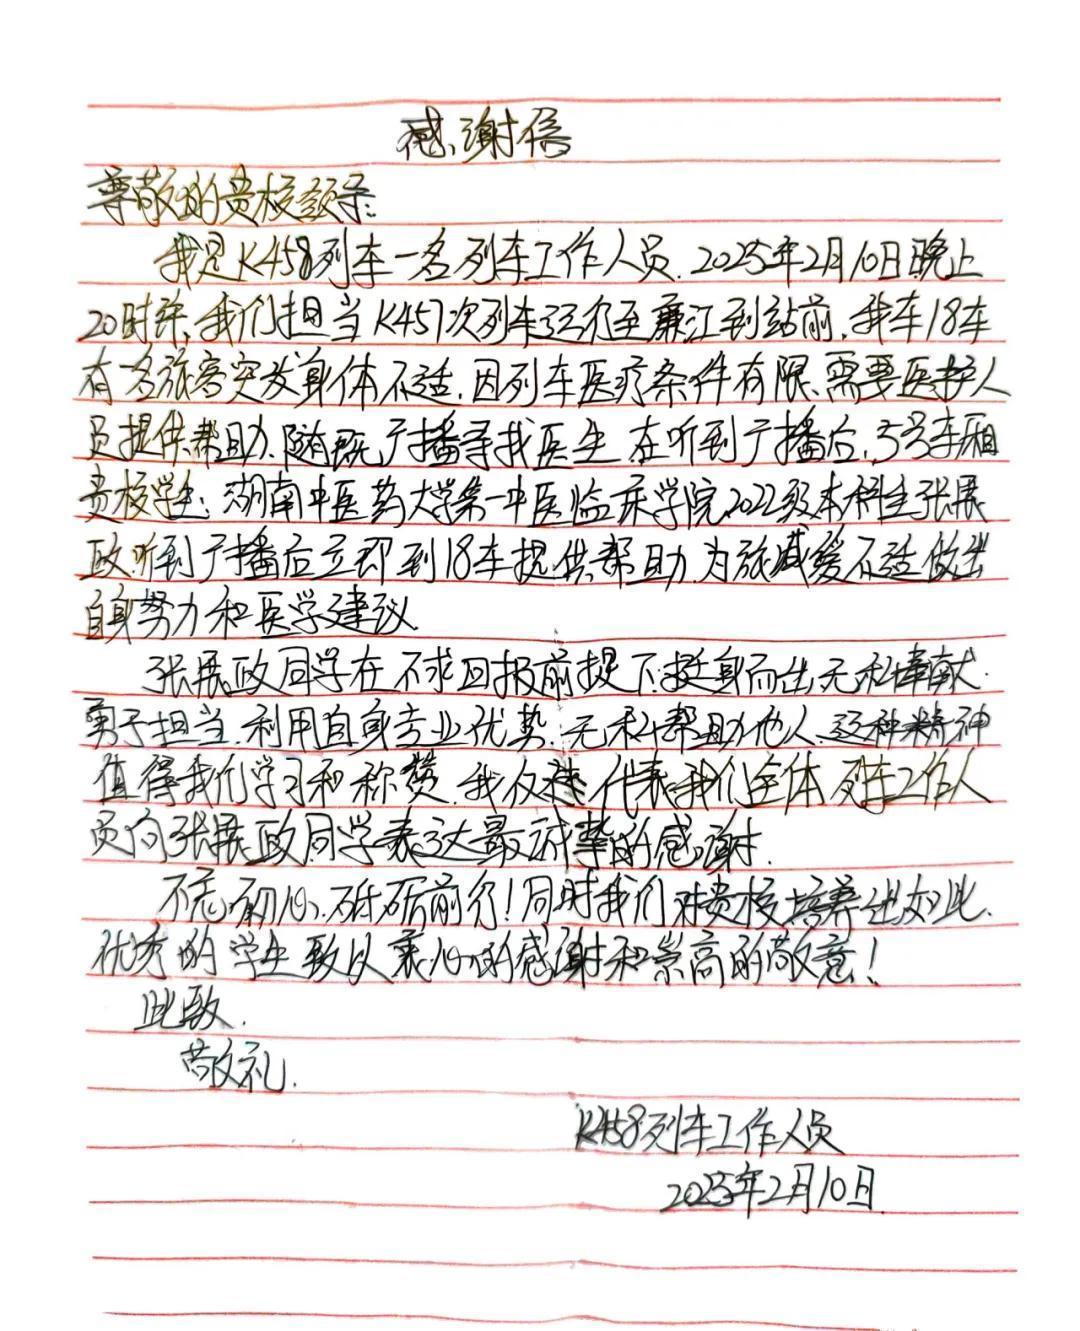 感谢信
尊敬的贵校领导:
我是K458列车一名列车工作人员.2025年2月10日晚上
20时许,我们担当K457次列车运行至廉江到站前,我车18车
有名旅客突发身体不适,因列车医疗条件有限、需要医护人
员提供帮助.随既广播寻找医生.在听到广播后,5号车厢
贵校学生:湖南中医药大学第一中医临床学院2022级本科生张展
政听到广播后立即到18车提供帮助.为旅减缓不适做出
自身努力和医学建议.
张展政同学在不求回报前提下.挺身而出.无私奉献.
勇于担当.利用自身专业优势.无私帮助他人.这种精神
值得我们学习和称赞.我仅 代表我们全体列车工作人
员向张展政同学表达最诚挚的感谢.
不忘初心.砥砺前行!同时我们对贵校培养出如此.
优秀的学生致以衷心的感谢和崇高的敬意!
此致.
敬礼.
K458列车工作人员
2025年2月10日.